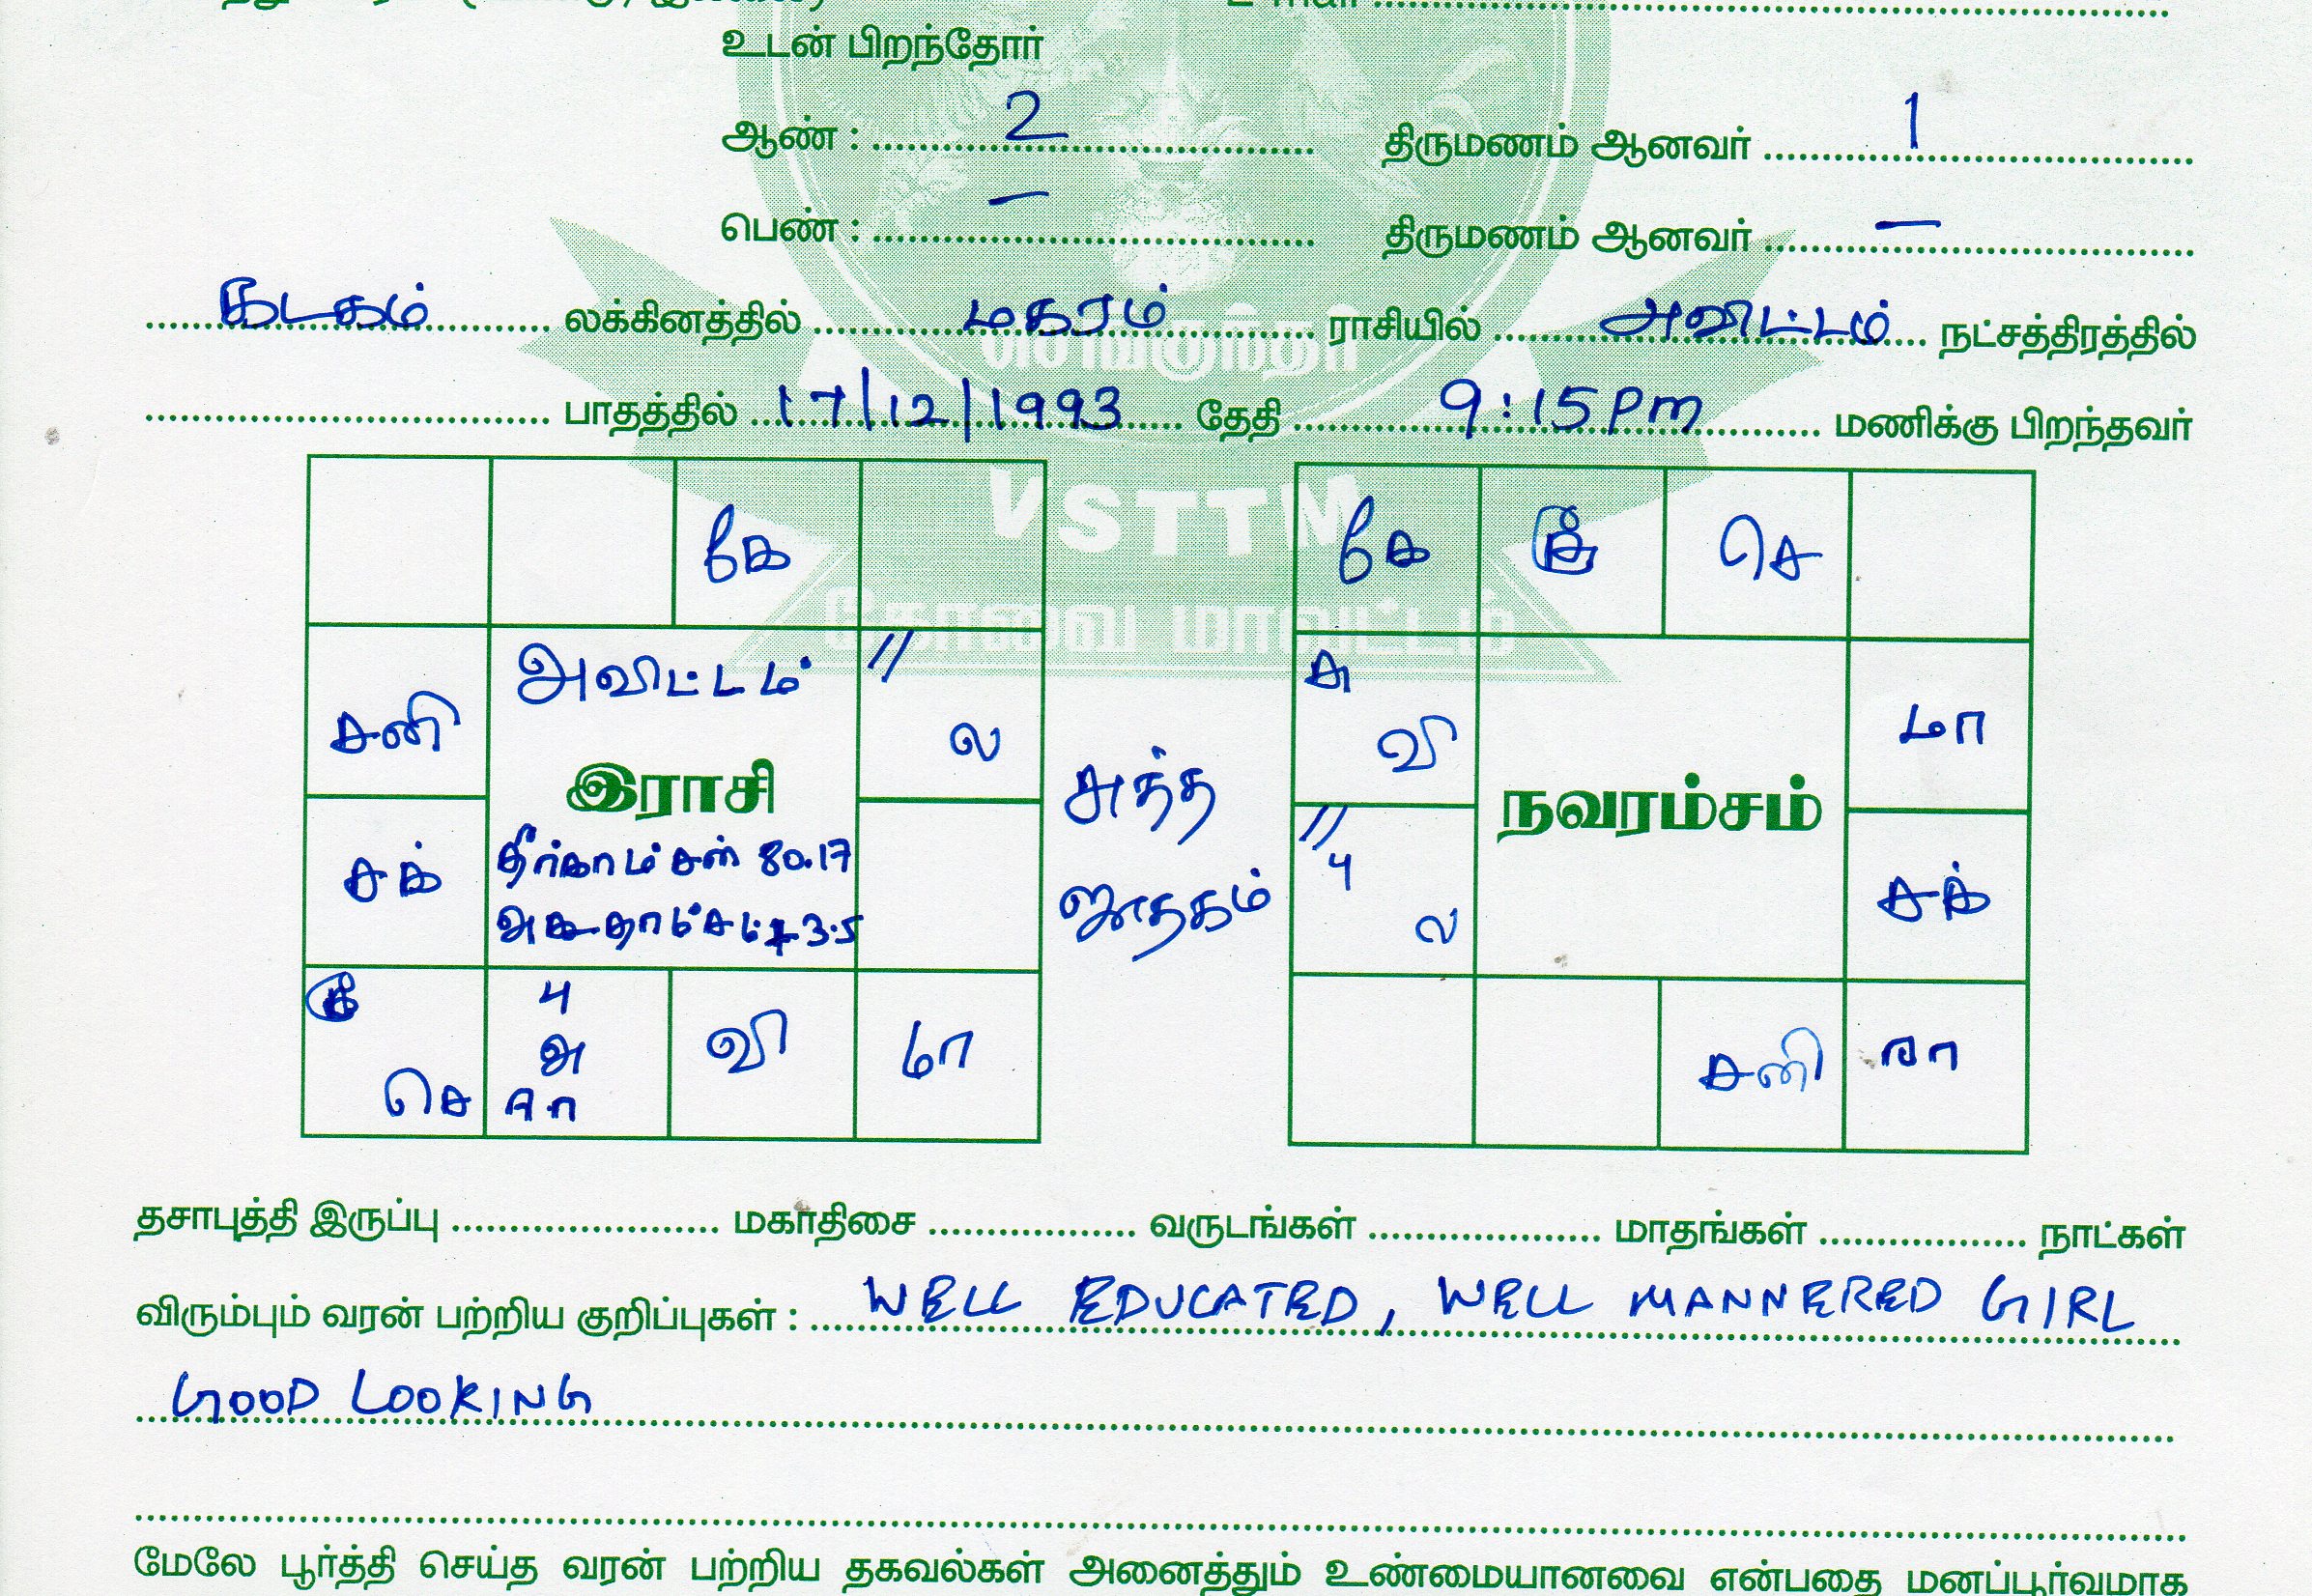 உடன் பிறந்தோர்
ஆண் : 2 திருமணம் ஆனவர் 1
பெண் : — திருமணம் ஆனவர் —
கடகம் லக்கினத்தில் மகரம் ராசியில் அவிட்டம் நட்சத்திரத்தில்
பாதத்தில் 17/12/1993 தேதி 9:15 PM மணிக்கு பிறந்தவர்
VSTTM
கோவை மாவட்டம்
கே
அவிட்டம்
சனி
ல
இராசி
80.17
3.5
செ
வி
மா
கே
செ
வி
மா
நவரம்சம்
ல
சனி
ரா
ஜாதகம்
தசாபுத்தி இருப்பு மகாதிசை வருடங்கள் மாதங்கள் நாட்கள்
விரும்பும் வரன் பற்றிய குறிப்புகள் : WELL EDUCATED, WELL MANNERED GIRL
GOOD LOOKING
மேலே பூர்த்தி செய்த வரன் பற்றிய தகவல்கள் அனைத்தும் உண்மையானவை என்பதை மனப்பூர்வமாக